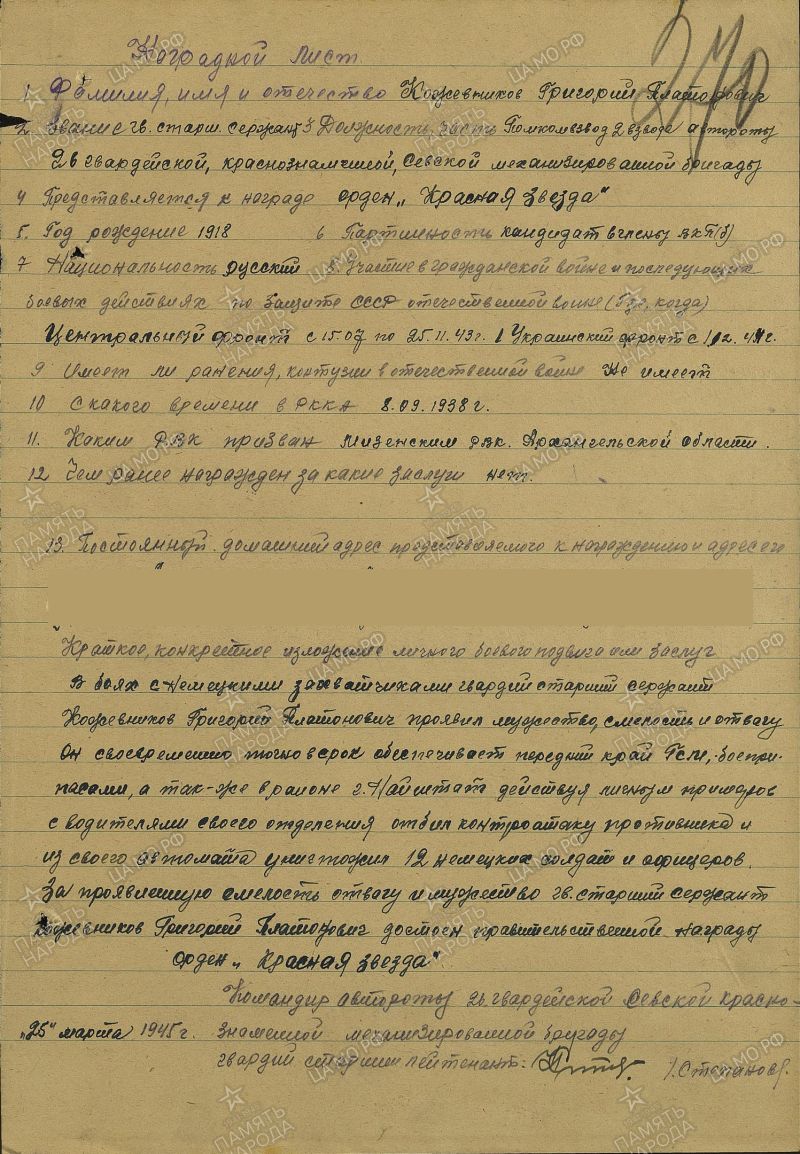 270
Наградной лист
1 Фамилия, имя и отечество Кожевников Григорий Платонович
2 Звание гв. старш. сержант 3 Должность, часть Помкомвзвод 2 взвода автороты
26 гвардейской, краснознаменной, Севской механизированной бригады
4 Представляется к награде орден „Красная звезда"
5. Год рождение 1918 6 Партийность кандидат в члены ВКП(б)
7 Национальность русский 8. Участие в гражданской войне и последующих
боевых действиях по защите СССР отечественной войне (где, когда)
Центральный фронт с 15.07 по 25.11.43г. 1 Украинский фронт с
9 Имеет ли ранения, контузии в отечественной войне Не имеет
10 С какого времени в РККА 8.09.1938г.
11. Каким РВК призван Мизенским рвк. Архангельской области.
12 Чем ранее награжден за какие заслуги нет.
13. Постоянный домашний адрес представляемого к награждению и адрес его
Краткое, конкретное изложение личного боевого подвига или заслуг
В боях с немецкими захватчиками гвардий старший сержант
Кожевников Григорий Платонович проявил мужество, смелость и отвагу
Он своевременно точно в срок обеспечивает передний край Гсм, боепри-
пасами, а так-же в районе г. Найштат действуя личным примером
с водителями своего отделения отбил контроатаку противника и
из своего автомата уничтожил 12 немецких солдат и офицеров.
За проявленную смелость отвагу и мужество гв. старший сержант
Кожевников Григорий Платонович достоен правительственной награды
орден „Красная звезда".
Командир автороты 26 гвардейской Севской красно-
„25" марта 1945г. знаменной механизированной бригады
гвардий старший лейтенант: /.Степанов/.
ПАМЯТЬ НАРОДА
ЦАМО.РФ